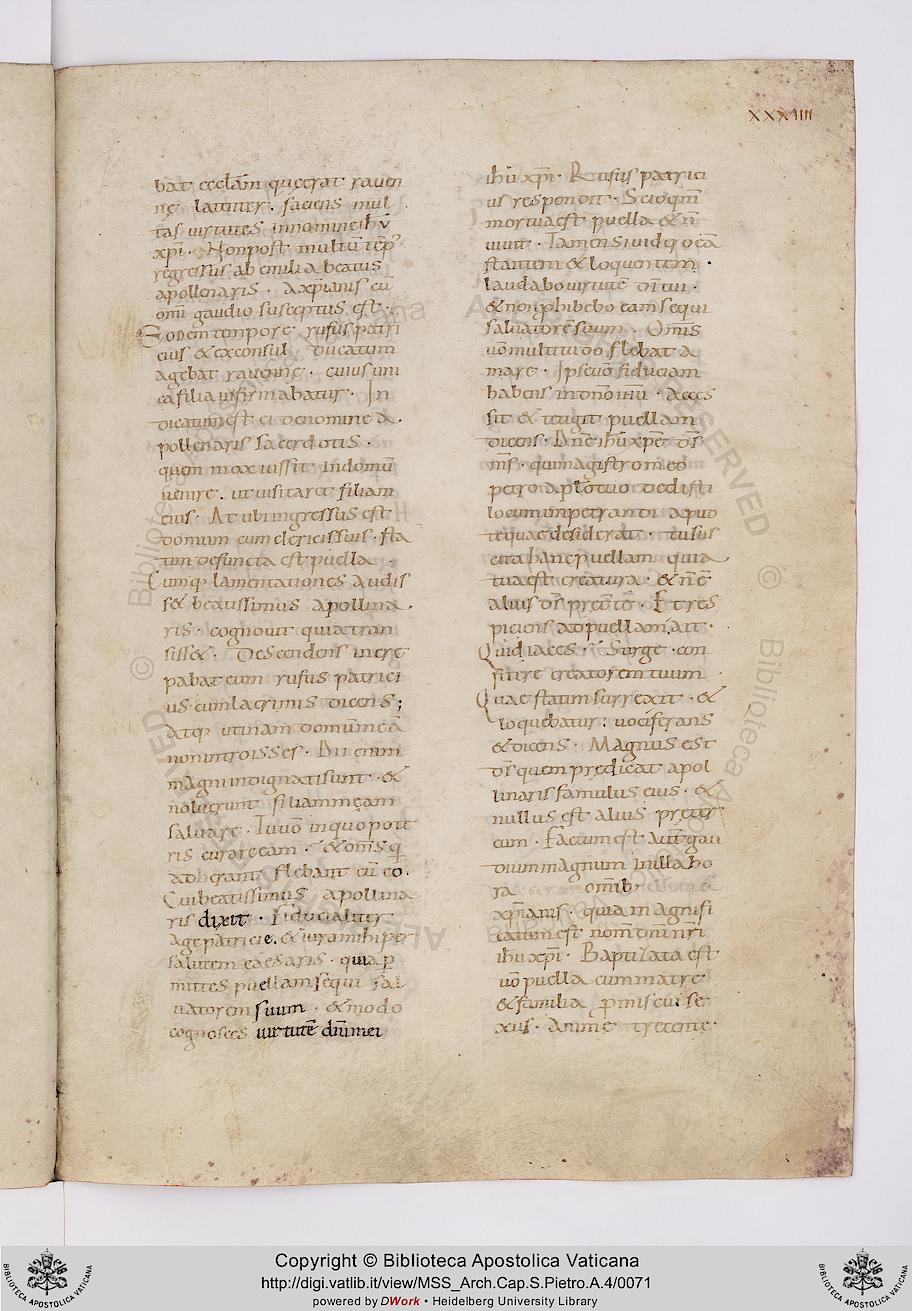 XXXIIII
bat ecclam quę erat raven
nę latenter. faciens mul
tas virtutes in nomine ihu
xpi. Non post multu tēp
regressus ab emilia beatus
apollenaris. a xpianis cū
omi gaudio susceptus est.
Eodem tempore rufus patri
cius & ex consul ducatum
agebat rauenne. cuius uni
ca filia infirmabatur. In
dicatum est ei de nomine a
pollenaris sacerdotis.
quem mox iussit in domū
uenire. ut uisitaret filiam
eius. At ubi ingressus est
domum cum clericis suis. sta
tim defuncta est puella.
Cumq; lamentationes audis
s& beatissimus apollina
ris. cognouit quia tran
siss&. Descendens incre
pabat eum rufus patrici
us cum lacrimis dicens;
atq; utinam domū meā
non introisses. Dii enim
magni indignati sunt. &
noluerunt filiam meam
saluare. Tu uō in quo pote
ris curare eam. & oms q
aderant flebant cū eo.
Cui beatissimus apollina
ris dixit. Fiducialiter
age patricie. & iura mihi per
salutem caesaris. quia p
mittes puellam sequi sal
uatorem suum. & modo
cognosces uirtutē dni mei
ihu xpi. Rufus patrici
us respondit. Scio qm
mortua est puella & n
uiuit. Tamen si uidero eā
stantem & loquentem.
laudabo uirtutē di tui.
& non phibebo eam sequi
saluatorē suum. Omis
uō multitudo flebat a
mare. Ipse uō fiduciam
habens in dno ihu. acces
sit & tetigit puellam
dicens. Dne ihu xpe ds
ms. qui magistro meo
petro aplo tuo dedisti
locum impetrandi apud
te quae desiderat. tu sus
cita hanc puellam quia
tua est creatura. & n ē
alius ds pret tē. Et res
piciens ad puellam ait.
Quid iaces. Surge. con
fitere creatorem tuum.
Quae statim surrexit. &
loquebatur. uociferans
& dicens. Magnus est
ds quem predicat apol
linaris famulus eius. &
nullus est alius preter
eum. Factum est aute gau
dium magnum in illa ho
ra omib
xpianis. quia magnifi
catum est nom dni nri
ihu xpi. Baptizata est
uō puella cum matre
& familia promiscui se
xus. animę trecentę.
Copyright © Biblioteca Apostolica Vaticana
http://digi.vatlib.it/view/MSS_Arch.Cap.S.Pietro.A.4/0071
powered by DWork • Heidelberg University Library